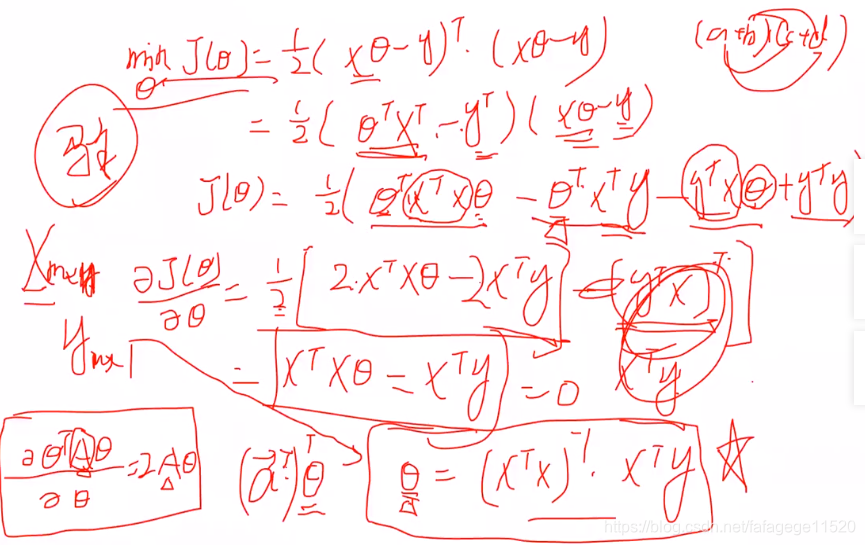 min J(θ) = 1/2 (xθ-y)ᵀ · (xθ-y) (a+b)(c+d)
θ
= 1/2 (θᵀXᵀ - yᵀ)(xθ-y)
J(θ) = 1/2 (θᵀXᵀXθ - θᵀXᵀy - yᵀXθ + yᵀy)
∂J(θ)/∂θ = 1/2 [2·XᵀXθ - 2Xᵀy - (yᵀX)ᵀ]
XᵀXθ = Xᵀy = 0 Xᵀy
∂θᵀAθ/∂θ = 2Aθ (a⃗ᵀ)θᵀ θ = (XᵀX)⁻¹ · Xᵀy ☆
https://blog.csdn.net/fafagege11520